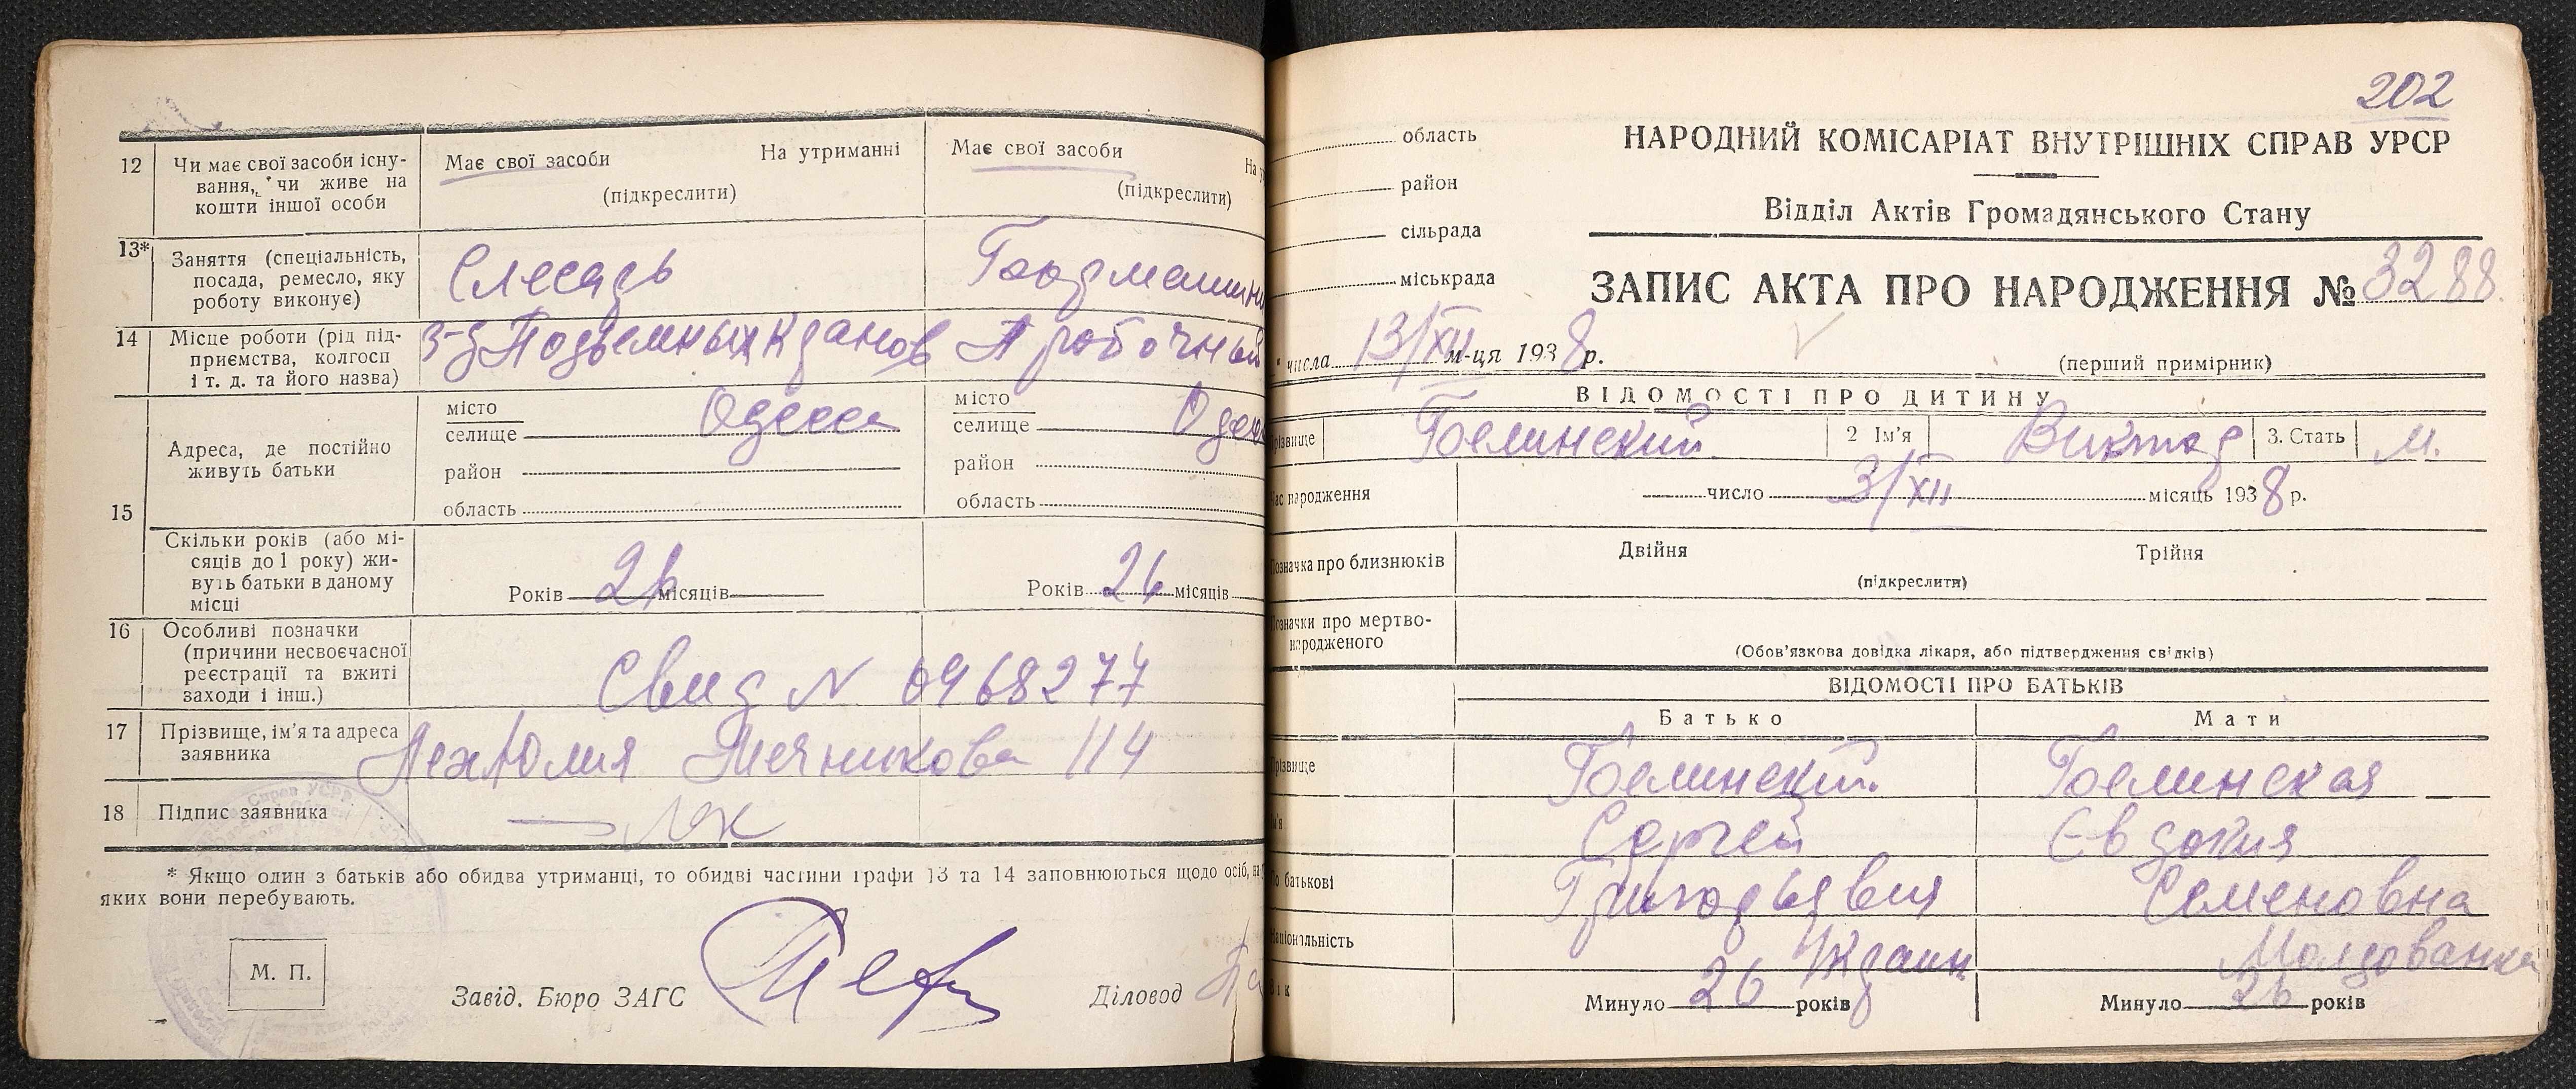 12 Чи має свої засоби існу-
вання, чи живе на
кошти іншої особи
Має свої засоби На утриманні
(підкреслити)
Має свої засоби На
(підкреслити)
13* Заняття (спеціальність,
посада, ремесло, яку
роботу виконує)
Слесарь
14 Місце роботи (рід під-
приємства, колгосп
і т. д. та його назва)
з-д Подъемных Кранов
15 Адреса, де постійно
живуть батьки
місто
селище Одесса
район
область
місто
селище
район
область
Скільки років (або мі-
сяців до 1 року) жи-
вуть батьки в даному
місці
Років 26 місяців
Років 26 місяців
16 Особливі позначки
(причини несвоєчасної
реєстрації та вжиті
заходи і інш.)
Свид N 0968277
17 Прізвище, ім'я та адреса
заявника
Мечникова 114
18 Підпис заявника
* Якщо один з батьків або обидва утриманці, то обидві частини графи 13 та 14 заповнюються щодо осіб, на
яких вони перебувають.
М. П.
Завід. Бюро ЗАГС
Діловод
202
область
район
сільрада
міськрада
НАРОДНИЙ КОМІСАРІАТ ВНУТРІШНІХ СПРАВ УРСР
Відділ Актів Громадянського Стану
ЗАПИС АКТА ПРО НАРОДЖЕННЯ № 3288.
числа 13/XII м-ця 1938 р.
(перший примірник)
ВІДОМОСТІ ПРО ДИТИНУ
різвище Гоелинский 2 Ім'я Виктор 3. Стать М.
ас народження число 3/XII місяць 1938 р.
означка про близнюків Двійня Трійня
(підкреслити)
означки про мертво-
народженого
(Обов'язкова довідка лікаря, або підтвердження свідків)
ВІДОМОСТІ ПРО БАТЬКІВ
Батько Мати
різвище Гоелинский Гоелинская
м'я Сергей Євдокия
о батькові Григорьевич Семеновна
аціональність Украин Молдованка
ік Минуло 26 років Минуло 26 років